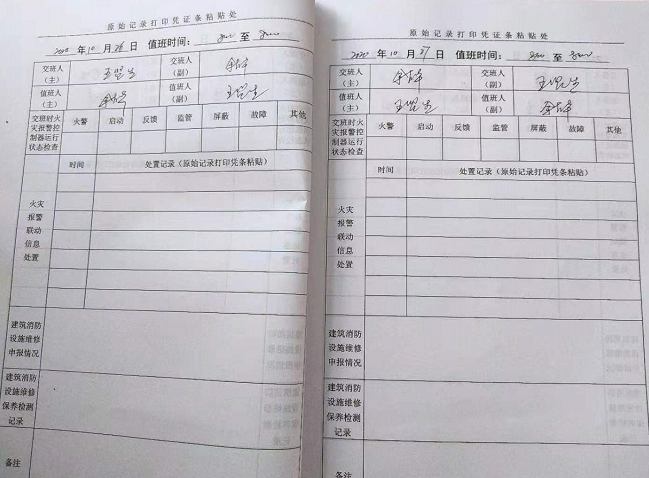 原始记录打印凭证条粘贴处
2020 年 10 月 26 日 值班时间： 至
交班人（主） 交班人（副）
值班人（主） 值班人（副）
交班时火灾报警控制器运行状态检查 火警 启动 反馈 监管 屏蔽 故障 其他
时间 处置记录（原始记录打印凭条粘贴）
火灾
报警
联动
信息
处置
建筑消防
设施维修
申报情况
建筑消防
设施维修
保养检测
记录
备注
原始记录打印凭证条粘贴处
2020 年 10 月 27 日 值班时间： 至
交班人（主） 交班人（副）
值班人（主） 值班人（副）
交班时火灾报警控制器运行状态检查 火警 启动 反馈 监管 屏蔽 故障 其他
时间 处置记录（原始记录打印凭条粘贴）
火灾
报警
联动
信息
处置
建筑消防
设施维修
申报情况
建筑消防
设施维修
保养检测
记录
备注